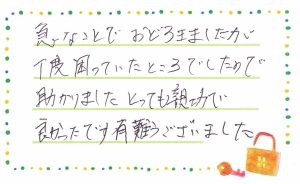 急なことで おどろきましたが
丁度困っていたところでしたので
助かりました とっても親切で
良かったです有難うございました